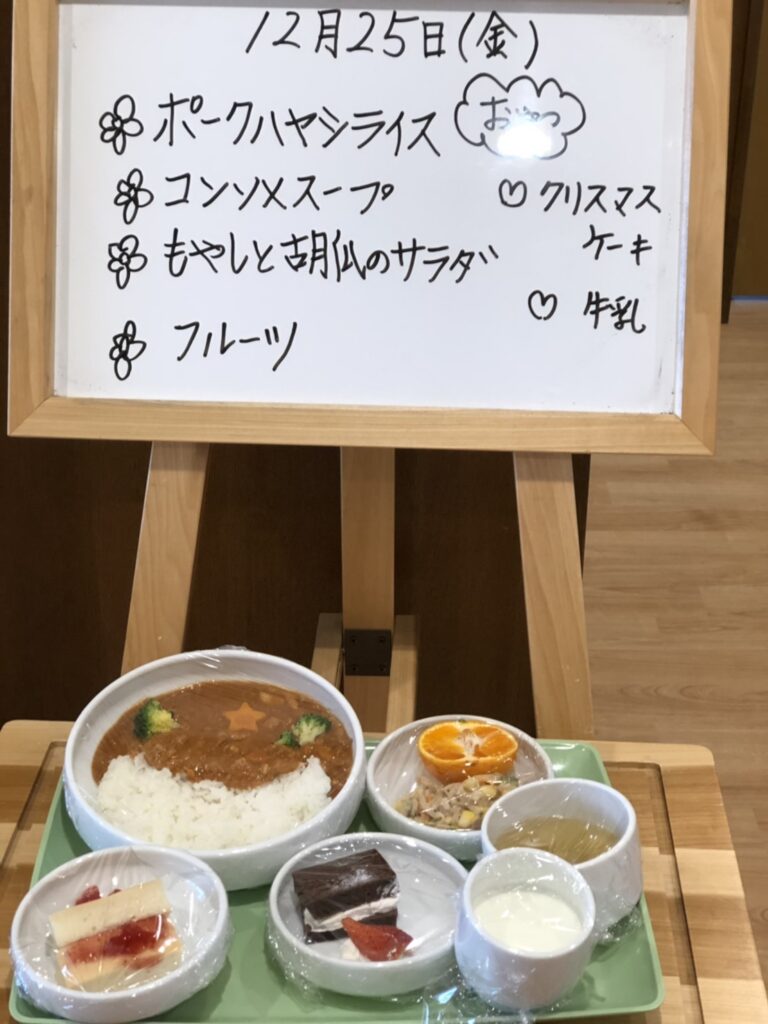 12月25日(金)
ポークハヤシライス
コンソメスープ
もやしと胡瓜のサラダ
フルーツ
おやつ
クリスマス
ケーキ
牛乳